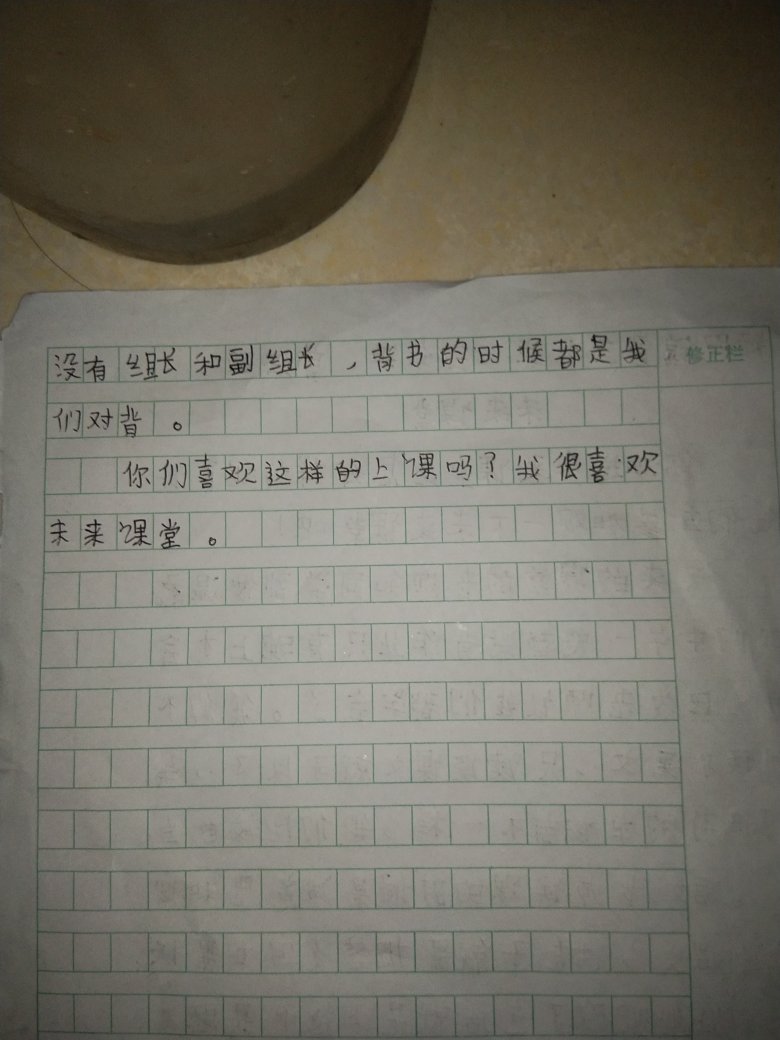 没有组长和副组长，背书的时候都是我
修正栏
们对背。
你们喜欢这样的上课吗？我很喜欢
未来课堂。